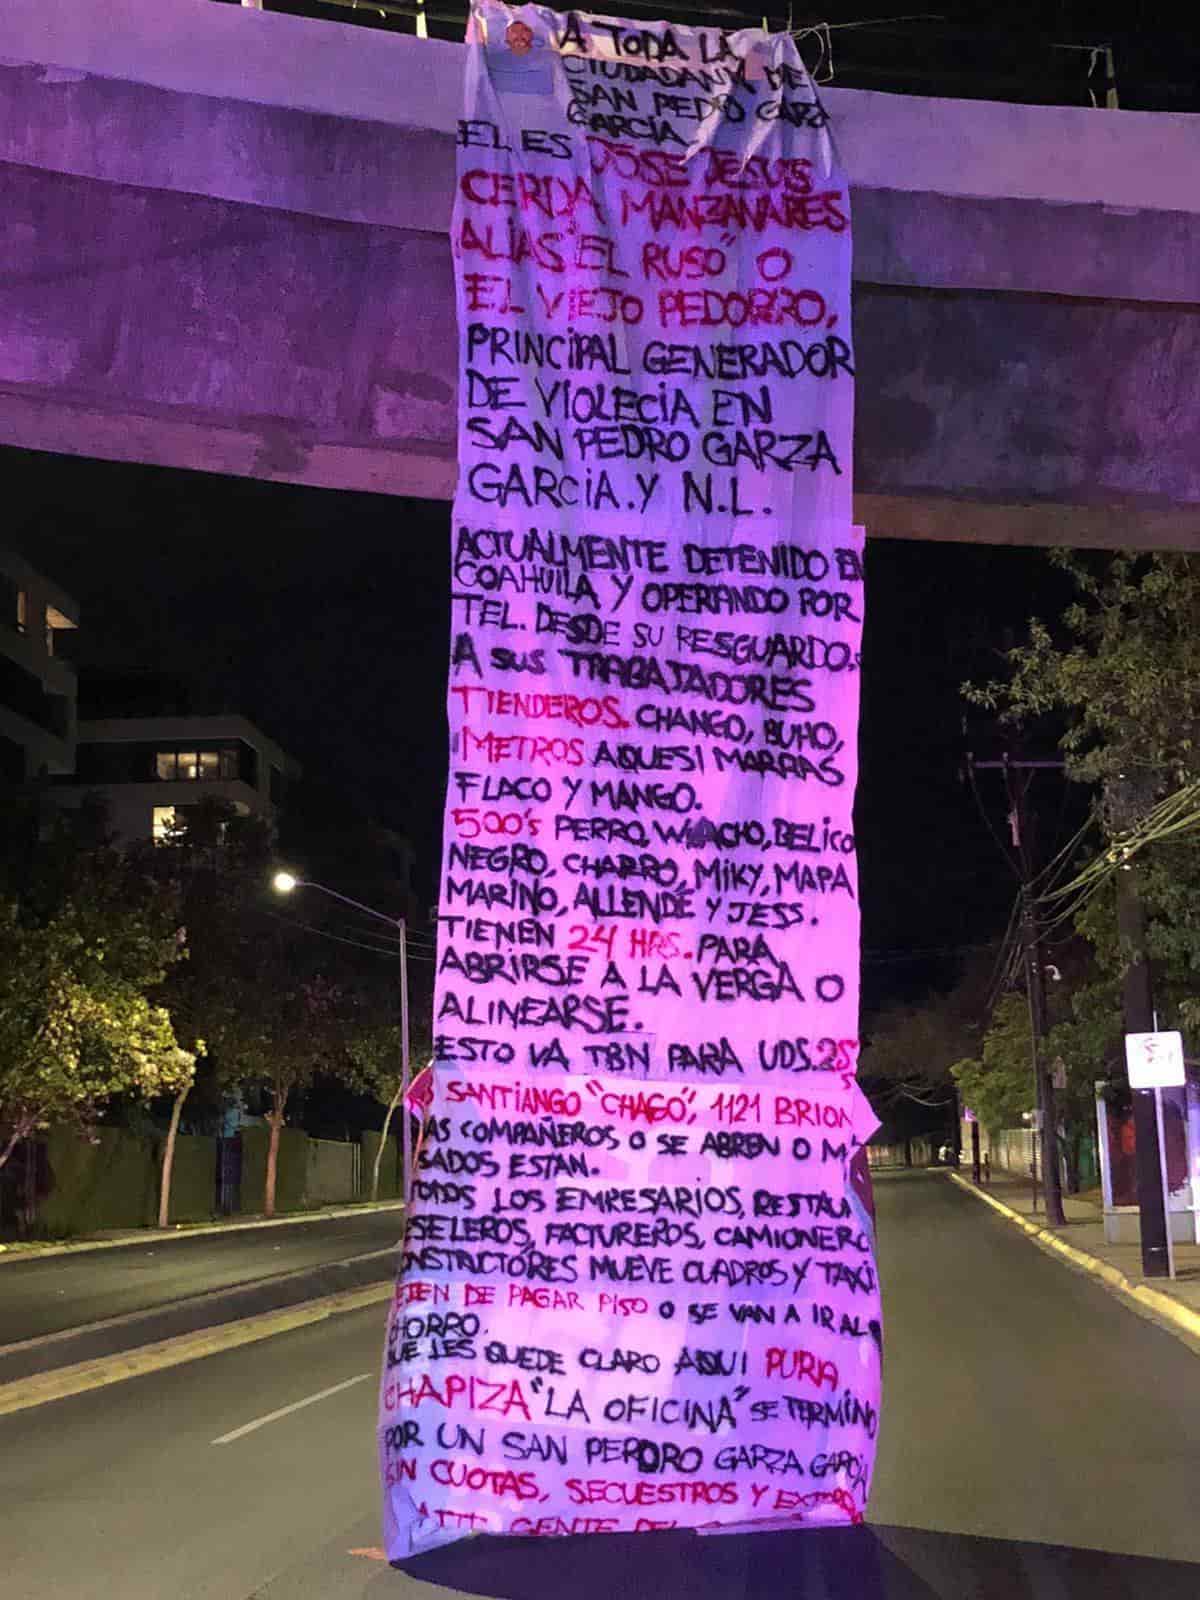 A TODA LA
CIUDADANIA DE
SAN PEDRO GARZA
GARCIA
EL ES JOSE JESUS
CERDA MANZANARES
ALIAS "EL RUSO" O
EL VIEJO PEDORRO,
PRINCIPAL GENERADOR
DE VIOLECIA EN
SAN PEDRO GARZA
GARCIA. Y N.L.
ACTUALMENTE DETENIDO EN
COAHUILA Y OPERANDO POR
TEL. DESDE SU RESGUARDO.
A SUS TRABAJADORES
TIENDEROS. CHANGO, BUHO,
METROS AQUESI MARRAS
FLACO Y MANGO.
500's PERRO, WACHO, BELICO
NEGRO, CHARRO, MIKY, MAPA
MARINO, ALLENDE Y JESS.
TIENEN 24 HRS. PARA
ABRIRSE A LA VERGA O
ALINEARSE.
ESTO VA TBN PARA UDS.
SANTIANGO "CHAGO", 1121 BRION
AS COMPAÑEROS O SE ABREN O M
SADOS ESTAN.
TODOS LOS EMRESARIOS, RESTAU
ESELEROS, FACTUREROS, CAMIONERO
ONSTRACTORES MUEVE CUADROS Y TAXI
EJEN DE PAGAR PISO O SE VAN A IR AL
CHORRO.
QUE LES QUEDE CLARO AQUI PURA
CHAPIZA "LA OFICINA" SE TERMINO
POR UN SAN PERDRO GARZA GARCIA
SIN CUOTAS, SECUESTROS Y
ATTE. GENTE DEL